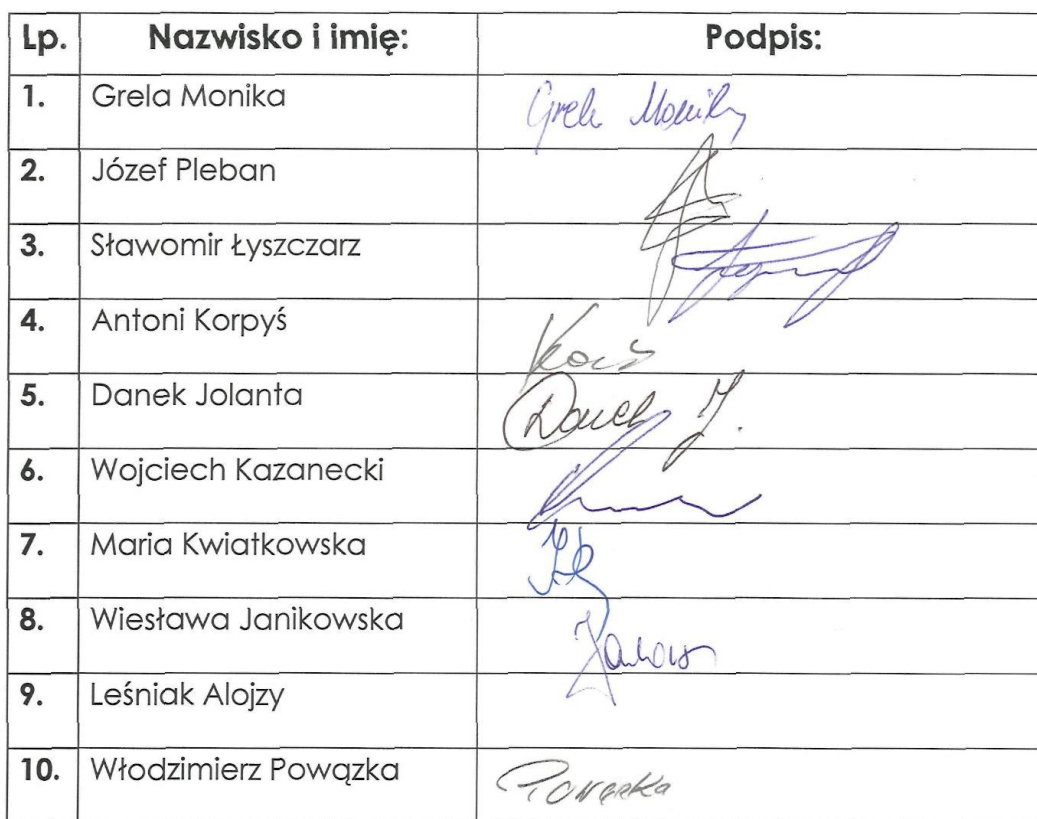 Lp. Nazwisko i imię: Podpis:
1. Grela Monika Grela Monika
2. Józef Pleban
3. Sławomir Łyszczarz
4. Antoni Korpyś
5. Danek Jolanta Danek J.
6. Wojciech Kazanecki
7. Maria Kwiatkowska
8. Wiesława Janikowska
9. Leśniak Alojzy
10. Włodzimierz Powązka Powązka